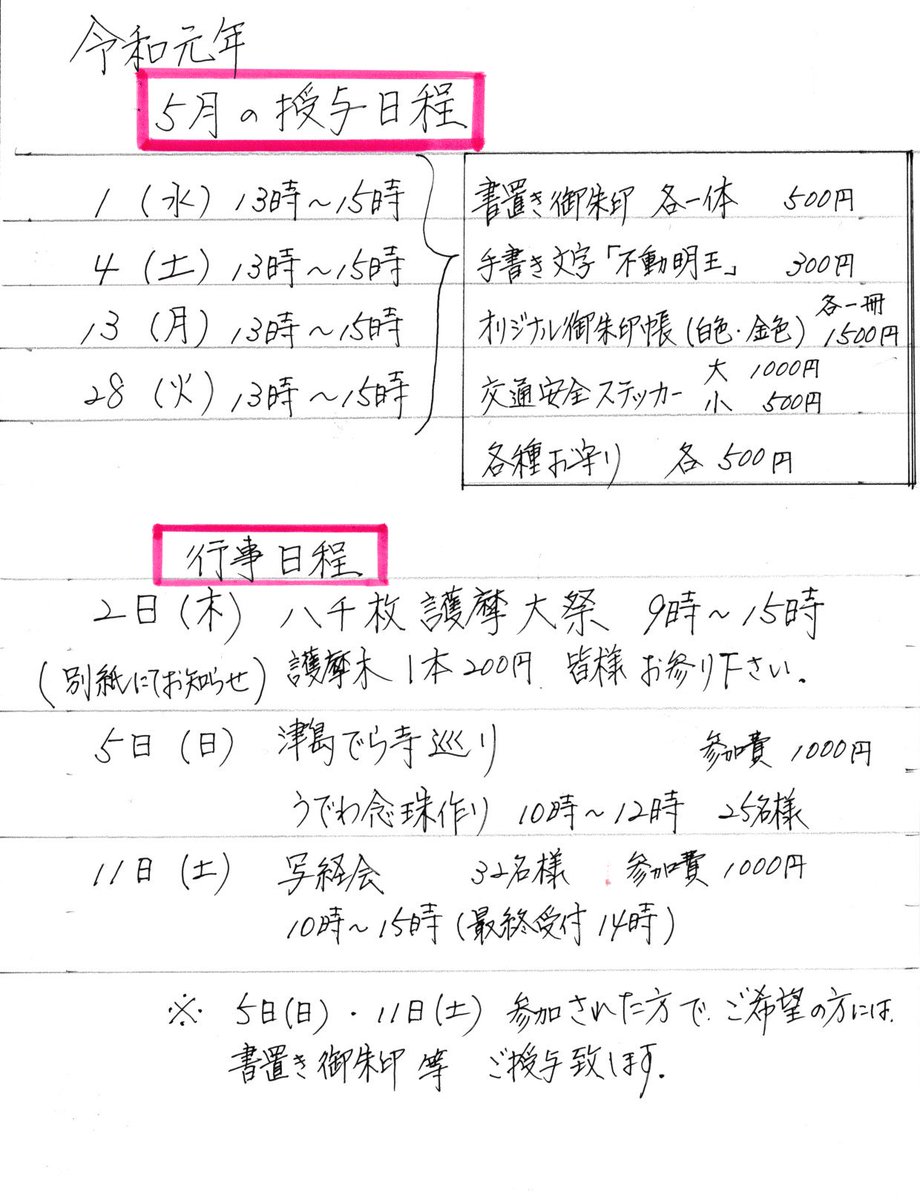 令和元年
5月の授与日程
1 (水) 13時～15時
4 (土) 13時～15時
13 (月) 13時～15時
28 (火) 13時～15時
書置き御朱印 各一体 500円
手書き文字「不動明王」 300円
オリジナル御朱印帳(白色・金色) 各一冊 1500円
交通安全ステッカー 大 1000円
小 500円
各種お守り 各 500円
行事日程
2日(木) 八千枚護摩大祭 9時～15時
(別紙にてお知らせ) 護摩木 1本200円 皆様お参り下さい.
5日(日) 津島でら寺巡り 参加費 1000円
うでわ念珠作り 10時～12時 25名様
11日(土) 写経会 32名様 参加費 1000円
10時～15時(最終受付 14時)
※ 5日(日)・11日(土) 参加された方で、ご希望の方には、
書置き御朱印等 ご授与致します.